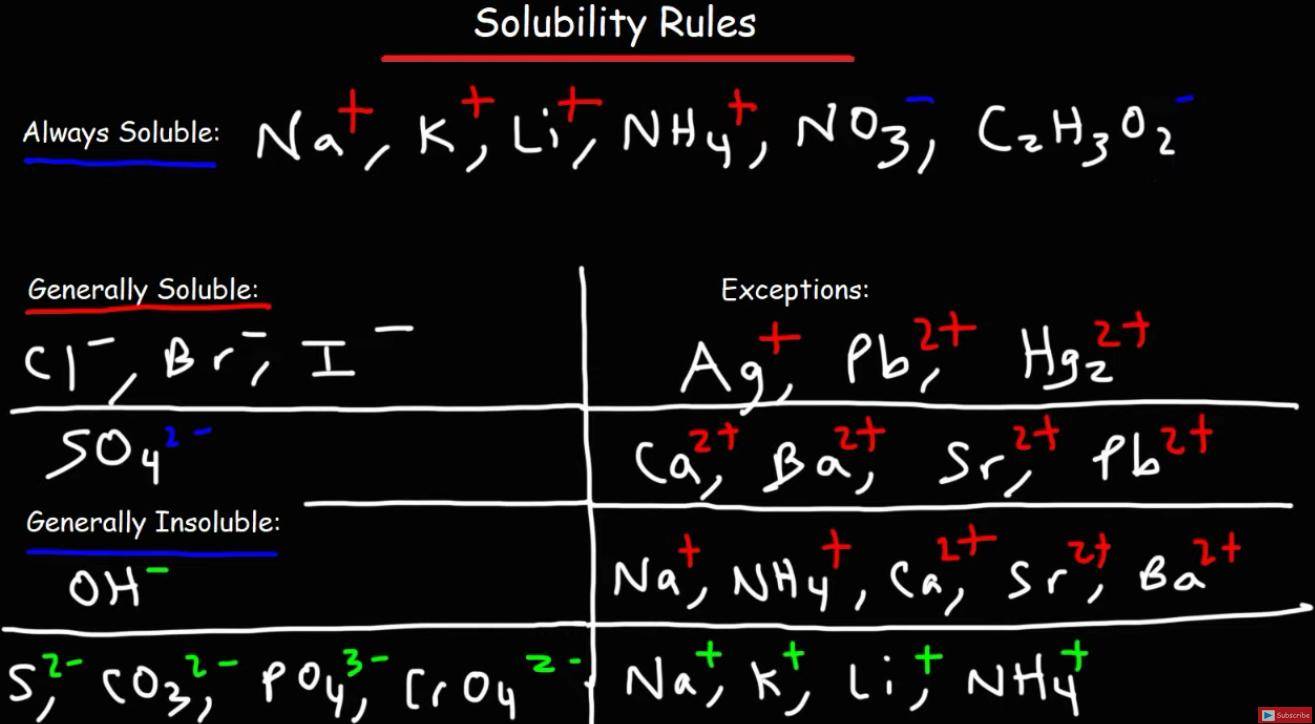 Solubility Rules
Always Soluble: Na⁺, K⁺, Li⁺, NH₄⁺, NO₃⁻, C₂H₃O₂⁻
Generally Soluble: Exceptions:
Cl⁻, Br⁻, I⁻ Ag⁺, Pb²⁺, Hg₂²⁺
SO₄²⁻ Ca²⁺, Ba²⁺, Sr²⁺, Pb²⁺
Generally Insoluble:
OH⁻ Na⁺, NH₄⁺, Ca²⁺, Sr²⁺, Ba²⁺
S²⁻, CO₃²⁻, PO₄³⁻, CrO₄²⁻ Na⁺, K⁺, Li⁺, NH₄⁺
Subscribe